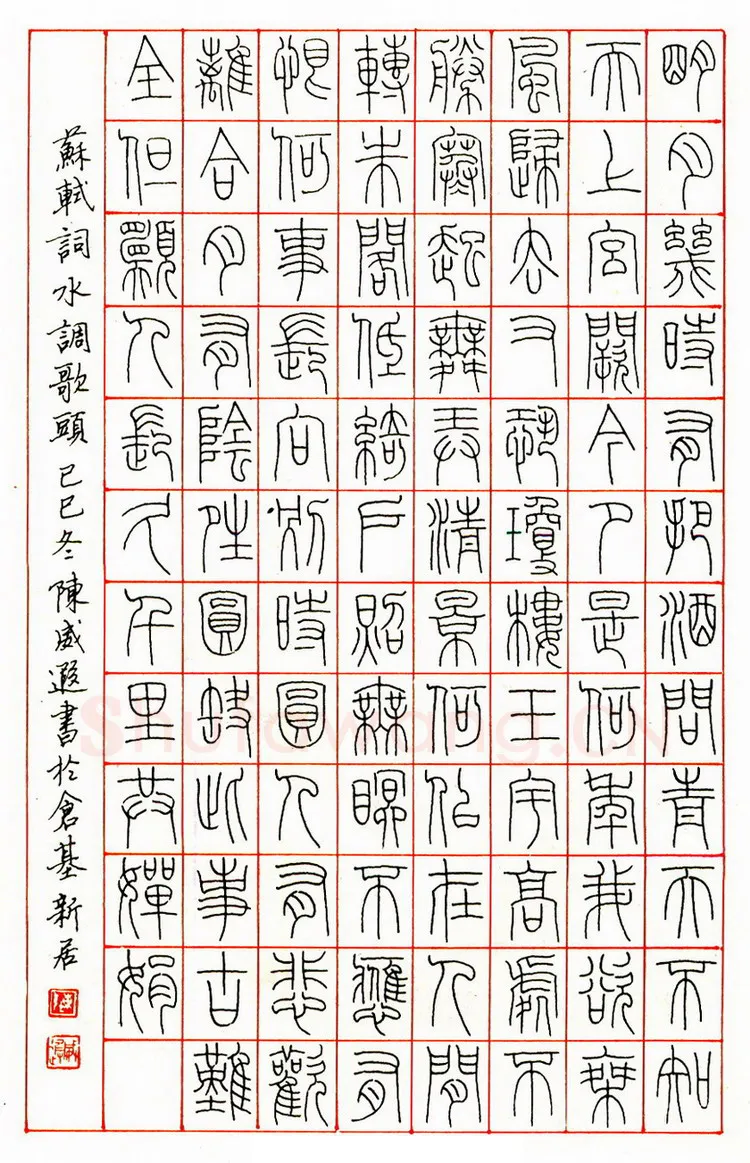 明月幾時有把酒問青天不知
天上宮闕今夕是何年我欲乘
風歸去又恐瓊樓玉宇高處不
勝寒起舞弄清景何似在人間
轉朱閣低綺戶照無眠不應有
恨何事長向別時圓人有悲歡
離合月有陰晴圓缺此事古難
全但願人長久千里共嬋娟
蘇軾詞水調歌頭己巳冬陳威遐書於倉基新居
Shufawang.CN